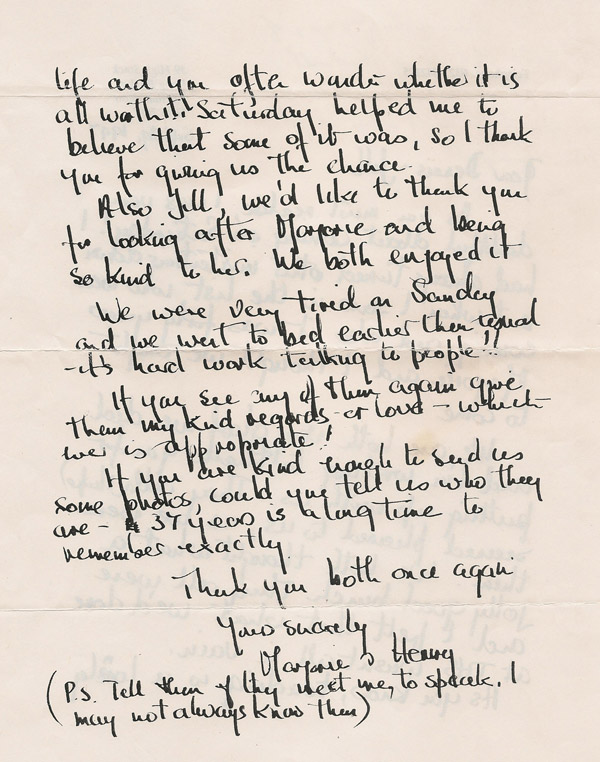 life and you often wonder whether it is
all worth it! Saturday helped me to
believe that some of it was, so I thank
you for giving us the chance.
Also Jill, we'd like to thank you
for looking after Marjorie and being
so kind to her. We both enjoyed it
We were very tired on Sunday
and we went to bed earlier than usual
- it's hard work talking to people!!
If you see any of them again give
them my kind regards - or love - which-
ever is appropriate!
If you are kind enough to send us
some photos, could you tell us who they
are - 37 years is a long time to
remember exactly.
Thank you both once again
Yours sincerely
Marjorie & Henry
(P.S. Tell them if they meet me, to speak. I
may not always know them)